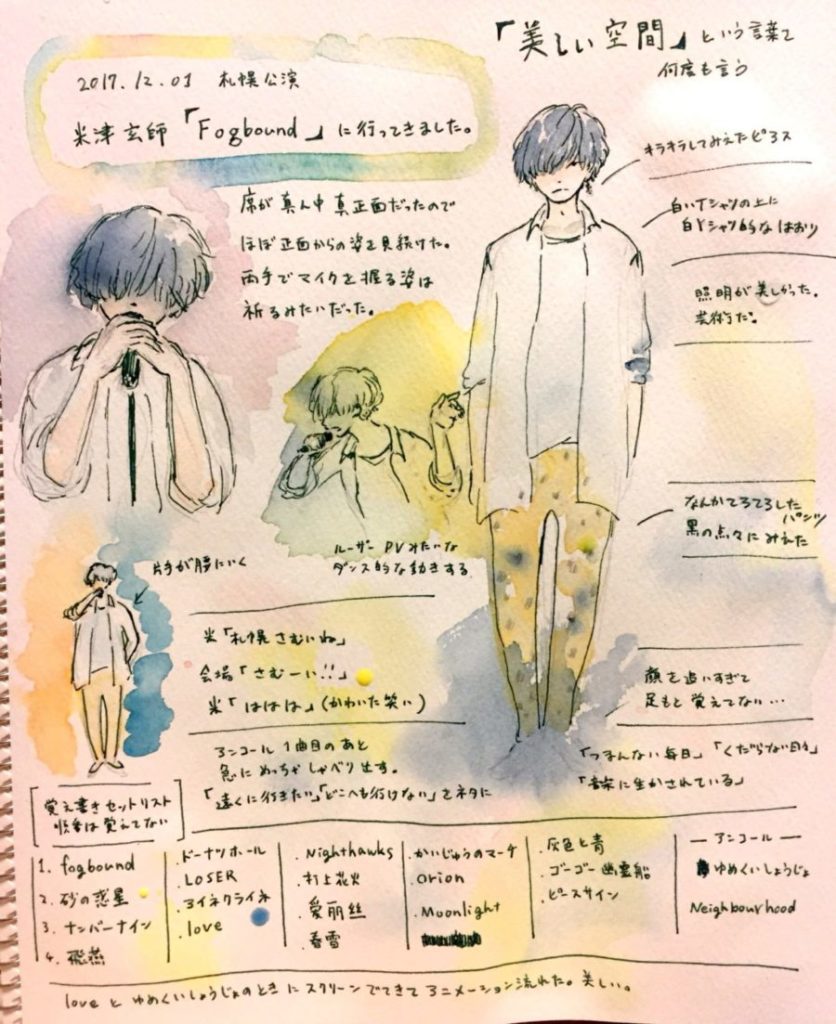 2017.12.01 札幌公演
米津玄師「Fogbound」に行ってきました。
「美しい空間」という言葉を
何度も言う
キラキラしてみえたピアス
白いTシャツの上に
白Yシャツ的なはおり
照明が美しかった。
芸術だ。
席が真ん中真正面だったので
ほぼ正面からの姿を見続けた。
両手でマイクを握る姿は
祈るみたいだった。
ルーザー PVみたいな
ダンス的な動きする
なんかてろてろした
パンツ
黒の点々にみえた
片手が腰にいく
米「札幌さむいね」
会場「さむーい!!」
米「ははは」(かわいた笑い)
顔を追いすぎて
足もと覚えてない…
アンコール1曲目のあと
急にめっちゃしゃべり出す。
「遠くに行きたい」「どこへも行けない」をネタに
「つまんない毎日」「くだらない日々」
「音楽に生かされている」
覚え書きセットリスト
順番は覚えてない
1. fogbound
2. 砂の惑星
3. ナンバーナイン
4. 飛燕
・ドーナツホール
・LOSER
・アイネクライネ
・love
・Nighthawks
・打上花火
・愛丽丝
・春雷
・かいじゅうのマーチ
・orion
・Moonlight
・灰色と青
・ゴーゴー幽霊船
・ピースサイン
― アンコール ―
ゆめくいしょうじょ
Neighbourhood
loveとゆめくいしょうじょのときにスクリーンでてきてアニメーション流れた。美しい。